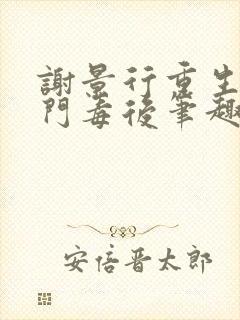 謝景行重生
門毒後筆趣
安倍晋太郎